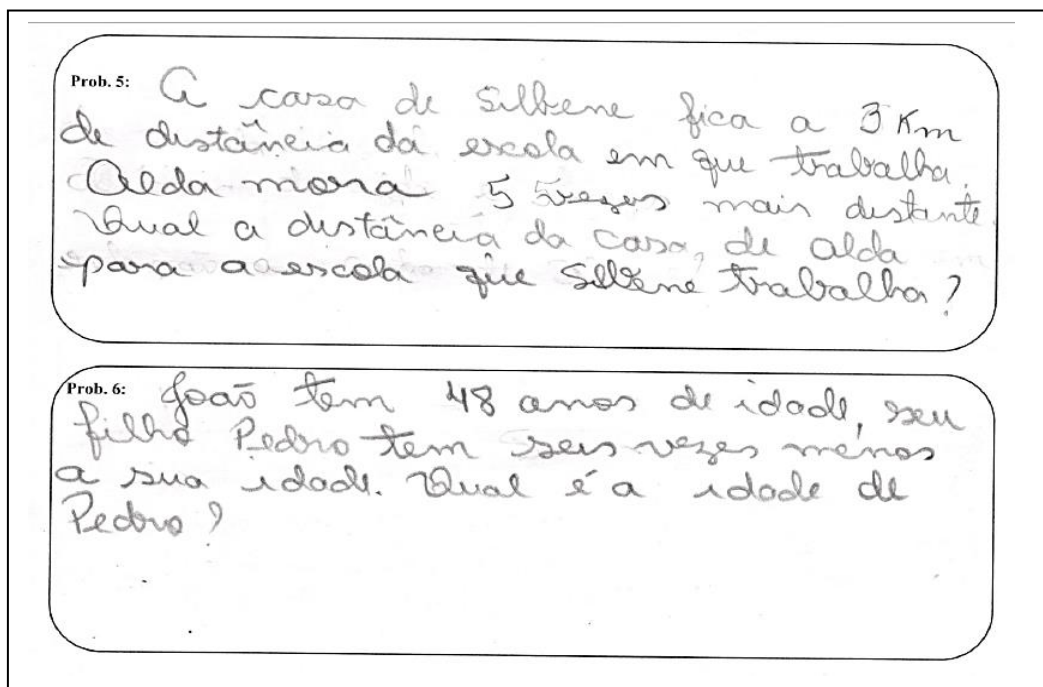 Prob. 5: A casa de Silbene fica a 3 Km
de distância da escola em que trabalha.
Alda mora 5 vezes mais distante.
Qual a distância da casa, de alda
para a escola que Silbene trabalha?
Prob. 6: João tem 48 anos de idade, seu
filho Pedro tem seis vezes menos
a sua idade. Qual é a idade de
Pedro?